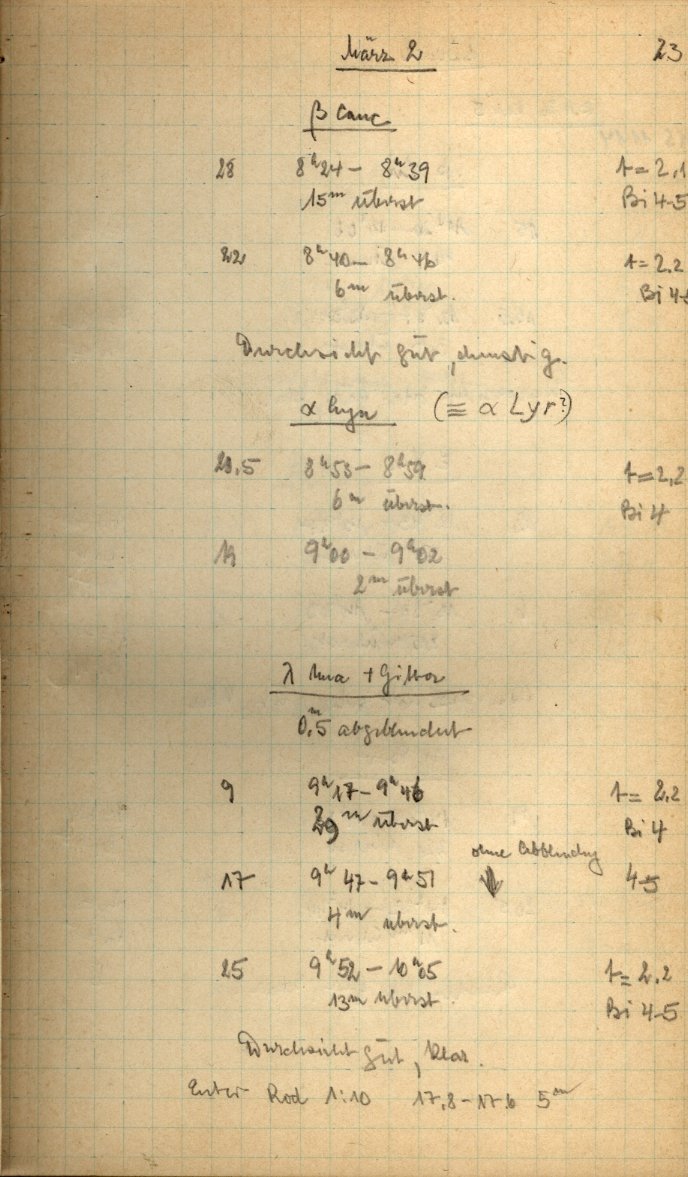 März 2 23
β Canc
28 8ʰ24 – 8ʰ39 t = 2,1
15ᵐ überst Bi 4-5
22 8ʰ40 – 8ʰ46 t = 2.2
6ᵐ überst. Bi 4-
Durchsicht gut, dunstig.
α Lyn (≡ α Lyr?)
8ʰ53 – 8ʰ59 t = 2,2
6ᵐ überst. Bi 4
9ʰ00 – 9ʰ02
2ᵐ überst
λ Uma + Gitter
0,ᵐ5 abgeblendet
9 9ʰ17 – 9ʰ46 t = 2.2
29ᵐ überst Bi 4
ohne Abblendung
17 9ʰ47 – 9ʰ51 ↓ 4-5
4ᵐ überst.
25 9ʰ52 – 10ʰ05 t = 2.2
13ᵐ überst Bi 4-5
Durchsicht gut, klar.
Rod 1:10 17,8 – 17.6 5ᵐ